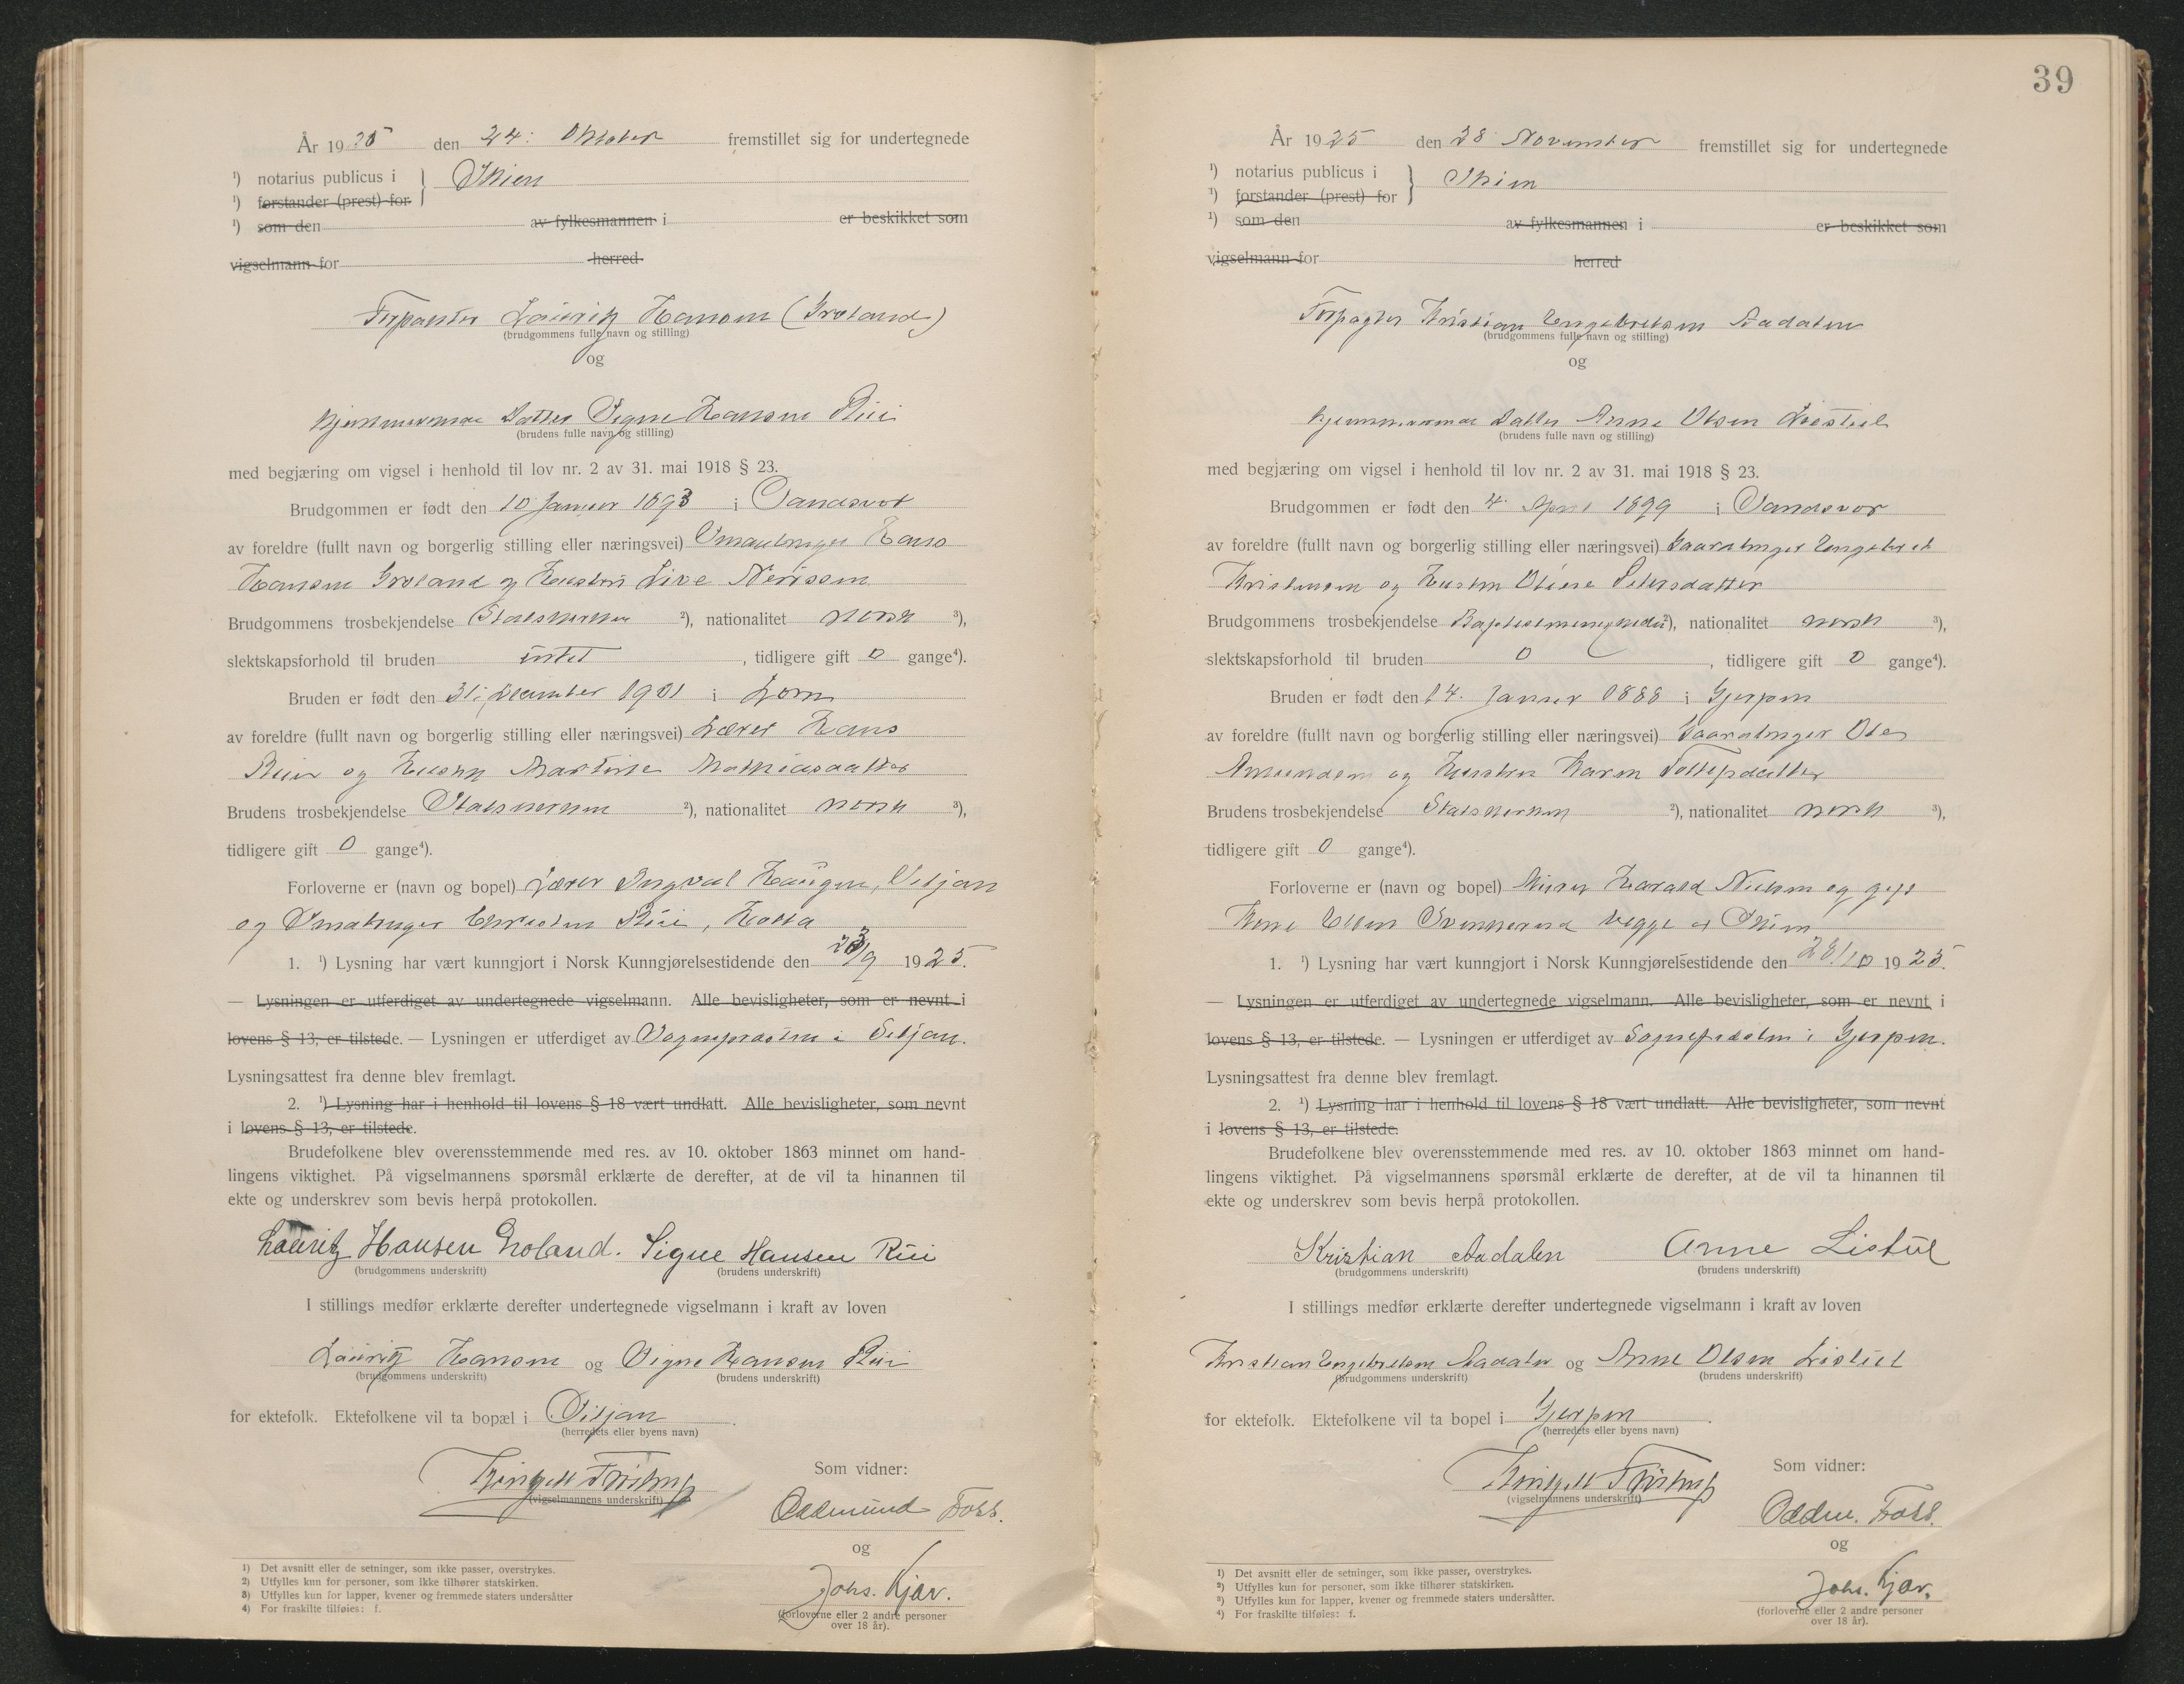 År 1925 den 24. Oktober fremstillet sig for undertegnede
¹) notarius publicus i } Skien
¹) forstander (prest) for
¹) som den av fylkesmannen i er beskikket som
vigselmann for herred
Forpakter Lauritz Hansen (Groland)
(brudgommens fulle navn og stilling)
og
hjemmeværende Datter Signe Hansen Rui
(brudens fulle navn og stilling)
med begjæring om vigsel i henhold til lov nr. 2 av 31. mai 1918 § 23.
Brudgommen er født den 10 Januar 1893 i Sandsvær
av foreldre (fullt navn og borgerlig stilling eller næringsvei) Smaabruger Hans
Hansen Groland og Hustru Live Nerisen
Brudgommens trosbekjendelse Statskirken ²), nationalitet norsk ³),
slektskapsforhold til bruden intet , tidligere gift 0 gange⁴).
Bruden er født den 31. December 1901 i
av foreldre (fullt navn og borgerlig stilling eller næringsvei) Lærer Hans
Rui og Hustru Martine Mathiasdatter
Brudens trosbekjendelse Statskirken ²), nationalitet norsk ³),
tidligere gift 0 gange⁴).
Forloverne er (navn og bopel) Lærer Ingval Haugen, Siljan
og Smabruger Rui, Holla
1. ¹) Lysning har vært kunngjort i Norsk Kunngjørelsestidende den 23/9 1925.
— Lysningen er utferdiget av undertegnede vigselmann. Alle bevisligheter, som er nevnt i
lovens § 13, er tilstede. — Lysningen er utferdiget av Sognepresten i Siljan.
Lysningsattest fra denne blev fremlagt.
2. ¹) Lysning har i henhold til lovens § 18 vært undlatt. Alle bevisligheter, som nevnt
i lovens § 13, er tilstede.
Brudefolkene blev overensstemmende med res. av 10. oktober 1863 minnet om hand-
lingens viktighet. På vigselmannens spørsmål erklærte de derefter, at de vil ta hinannen til
ekte og underskrev som bevis herpå protokollen.
Lauritz Hansen Groland. Signe Hansen Rui
(brudgommens underskrift) (brudens underskrift)
I stillings medfør erklærte derefter undertegnede vigselmann i kraft av loven
Lauritz Hansen og Signe Hansen Rui
(brudgommens underskrift) (brudens underskrift)
for ektefolk. Ektefolkene vil ta bopæl i Siljan .
(herredets eller byens navn)
Som vidner:
(vigselmannens underskrift)
Oddmund Foss.
og
Johs. Kjær.
(forloverne eller 2 andre personer
over 18 år).
1) Det avsnitt eller de setninger, som ikke passer, overstrykes.
2) Utfylles kun for personer, som ikke tilhører statskirken.
3) Utfylles kun for lapper, kvener og fremmede staters undersåtter
4) For fraskilte tilføies: f.
39
År 1925 den 28 November fremstillet sig for undertegnede
¹) notarius publicus i } Skien
¹) forstander (prest) for
¹) som den av fylkesmannen i er beskikket som
vigselmann for herred
Forpagter Kristian Engebretsen Aadalen
(brudgommens fulle navn og stilling)
og
hjemmeværende Datter Anne Olsen Listul
(brudens fulle navn og stilling)
med begjæring om vigsel i henhold til lov nr. 2 av 31. mai 1918 § 23.
Brudgommen er født den 4. April 1899 i Sandsvær
av foreldre (fullt navn og borgerlig stilling eller næringsvei) Gaardbruger Engebret
Kristensen og Hustru Oline Petersdatter
Brudgommens trosbekjendelse Baptistmenigheden ²), nationalitet norsk ³),
slektskapsforhold til bruden 0 , tidligere gift 0 gange⁴).
Bruden er født den 14. Januar 1888 i Gjerpen
av foreldre (fullt navn og borgerlig stilling eller næringsvei) Gaardbruger Ole
Amundsen og Hustru Karen Tollefsdatter
Brudens trosbekjendelse Statskirken ²), nationalitet norsk ³),
tidligere gift 0 gange⁴).
Forloverne er (navn og bopel) Murer Harald Nielsen og gift
Kone Ellen begge af Skien
1. ¹) Lysning har vært kunngjort i Norsk Kunngjørelsestidende den 28/10 1925.
— Lysningen er utferdiget av undertegnede vigselmann. Alle bevisligheter, som er nevnt i
lovens § 13, er tilstede. — Lysningen er utferdiget av Sognepresten i Gjerpen.
Lysningsattest fra denne blev fremlagt.
2. ¹) Lysning har i henhold til lovens § 18 vært undlatt. Alle bevisligheter, som nevnt
i lovens § 13, er tilstede.
Brudefolkene blev overensstemmende med res. av 10. oktober 1863 minnet om hand-
lingens viktighet. På vigselmannens spørsmål erklærte de derefter, at de vil ta hinannen til
ekte og underskrev som bevis herpå protokollen.
Kristian Aadalen Anne Listul
(brudgommens underskrift) (brudens underskrift)
I stillings medfør erklærte derefter undertegnede vigselmann i kraft av loven
Kristian Engebretsen Aadalen og Anne Olsen Listul
(brudgommens underskrift) (brudens underskrift)
for ektefolk. Ektefolkene vil ta bopel i Gjerpen .
(herredets eller byens navn)
Som vidner:
(vigselmannens underskrift)
Oddm. Foss.
og
Johs. Kjær.
(forloverne eller 2 andre personer
over 18 år).
1) Det avsnitt eller de setninger, som ikke passer, overstrykes.
2) Utfylles kun for personer, som ikke tilhører statskirken.
3) Utfylles kun for lapper, kvener og fremmede staters undersåtter.
4) For fraskilte tilføies: f.